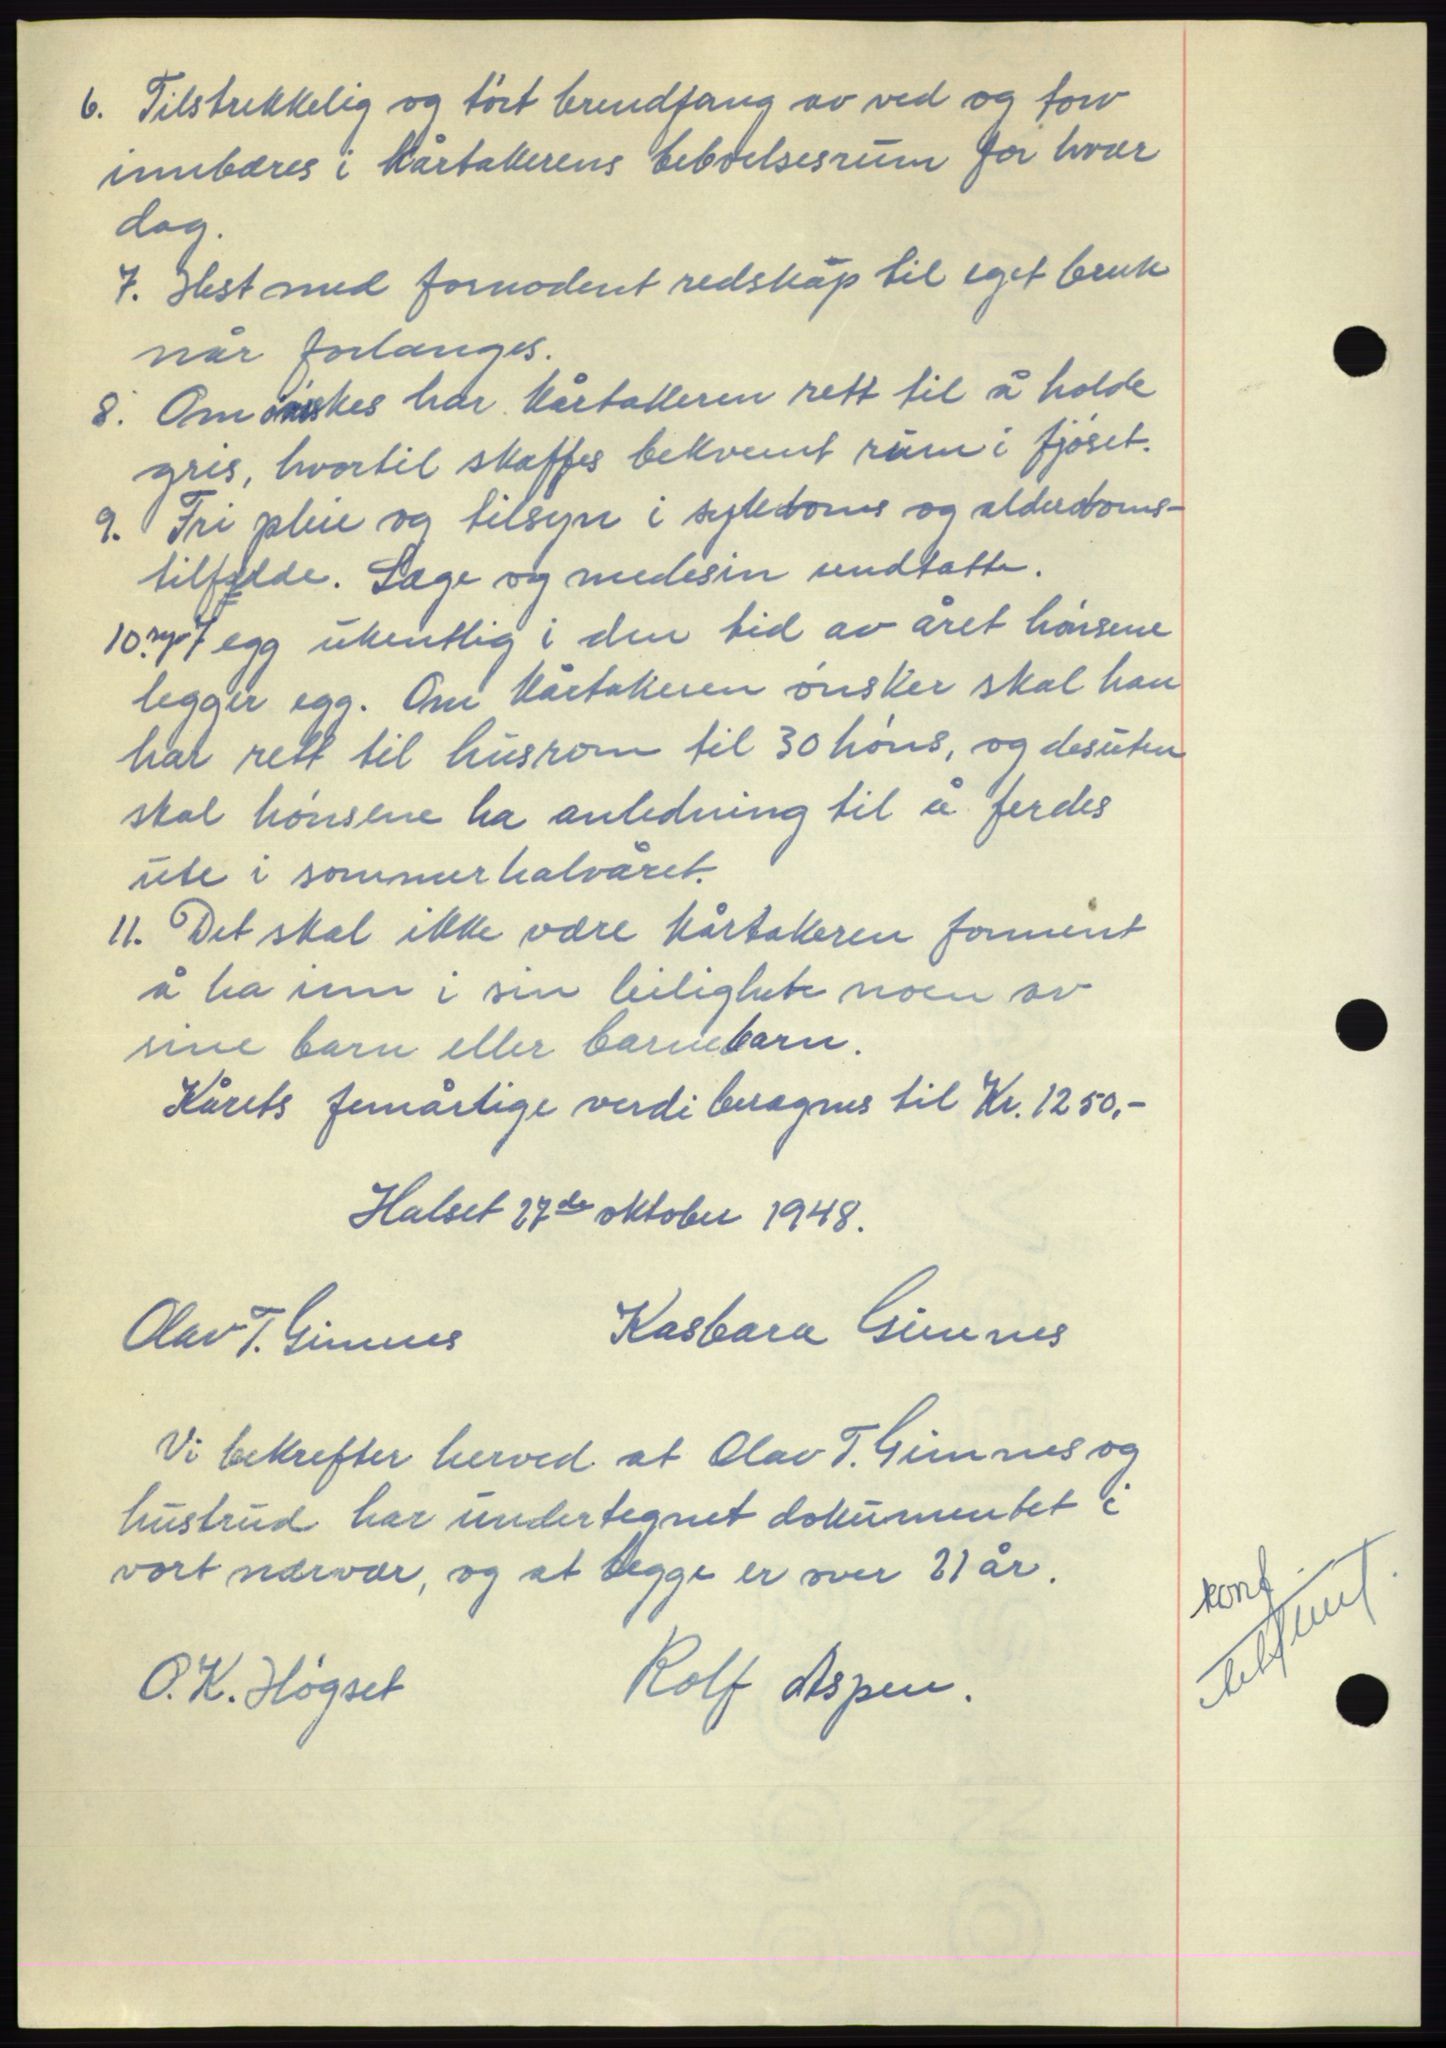 6. Tilstrekkelig og tórt brendfang av ved og torv
innbæres i kårtakerens beboelsesrum for hvær
dag.
7. Hest med fornodent redskap til eget bruk
når forlanges.
8. Om ónskes har kårtakeren rett til å holde
gris, hvortil skaffes bekvemt rum i fjóset.
9. Fri pleie og tilsyn i sykdoms og alderdoms-
tilfelde. Læge og medesin undtatte.
10. syv 7 egg ukentlig i den tid av året hónsene
legger egg. Om kårtakeren ónsker skal han
har rett til husrom til 30 hóns, og desuten
skal hónsene ha anledning til å ferdes
ute i sommerhalvåret.
11. Det skal ikke være kårtakeren forment
å ha inn i sin leilighete noen av
sine barn eller barnebarn.
Kårets femårlige verdi beragnes til Kr. 1250,-
Halset 27de oktober 1948.
Olav T. Gimnes Kasbara Gimnes
Vi bekrefter herved at Olav T. Gimnes og
hustrud har undertegnet dokumentet i
vort nærvær, og at begge er over 21 år.
O. K. Högset Rolf Aspen.
konf.